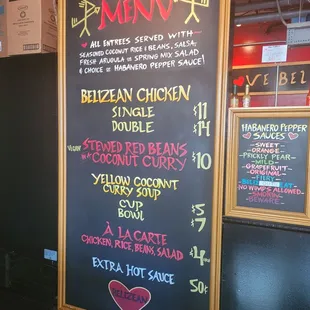 MENU
ALL ENTREES SERVED WITH
SEASONED COCONUT RICE & BEANS, SALSA,
FRESH ARUGULA & SPRING MIX SALAD
& CHOICE OF HABANERO PEPPER SAUCE!
BELIZEAN CHICKEN
SINGLE $11
DOUBLE $14
STEWED RED BEANS
COCONUT CURRY $10
YELLOW COCONUT
CURRY SOUP
CUP $5
BOWL $7
À LA CARTE
CHICKEN, RICE, BEANS, SALAD $4
EXTRA HOT SAUCE 50¢
BELIZEAN
VE BEL
HABANERO PEPPER
SAUCES
SWEET
ORANGE
PRICKLY PEAR
MILD
GRAPEFRUIT
ORIGINAL
FIERY
HEAT
NO WIMPS ALLOWED
BEWARE